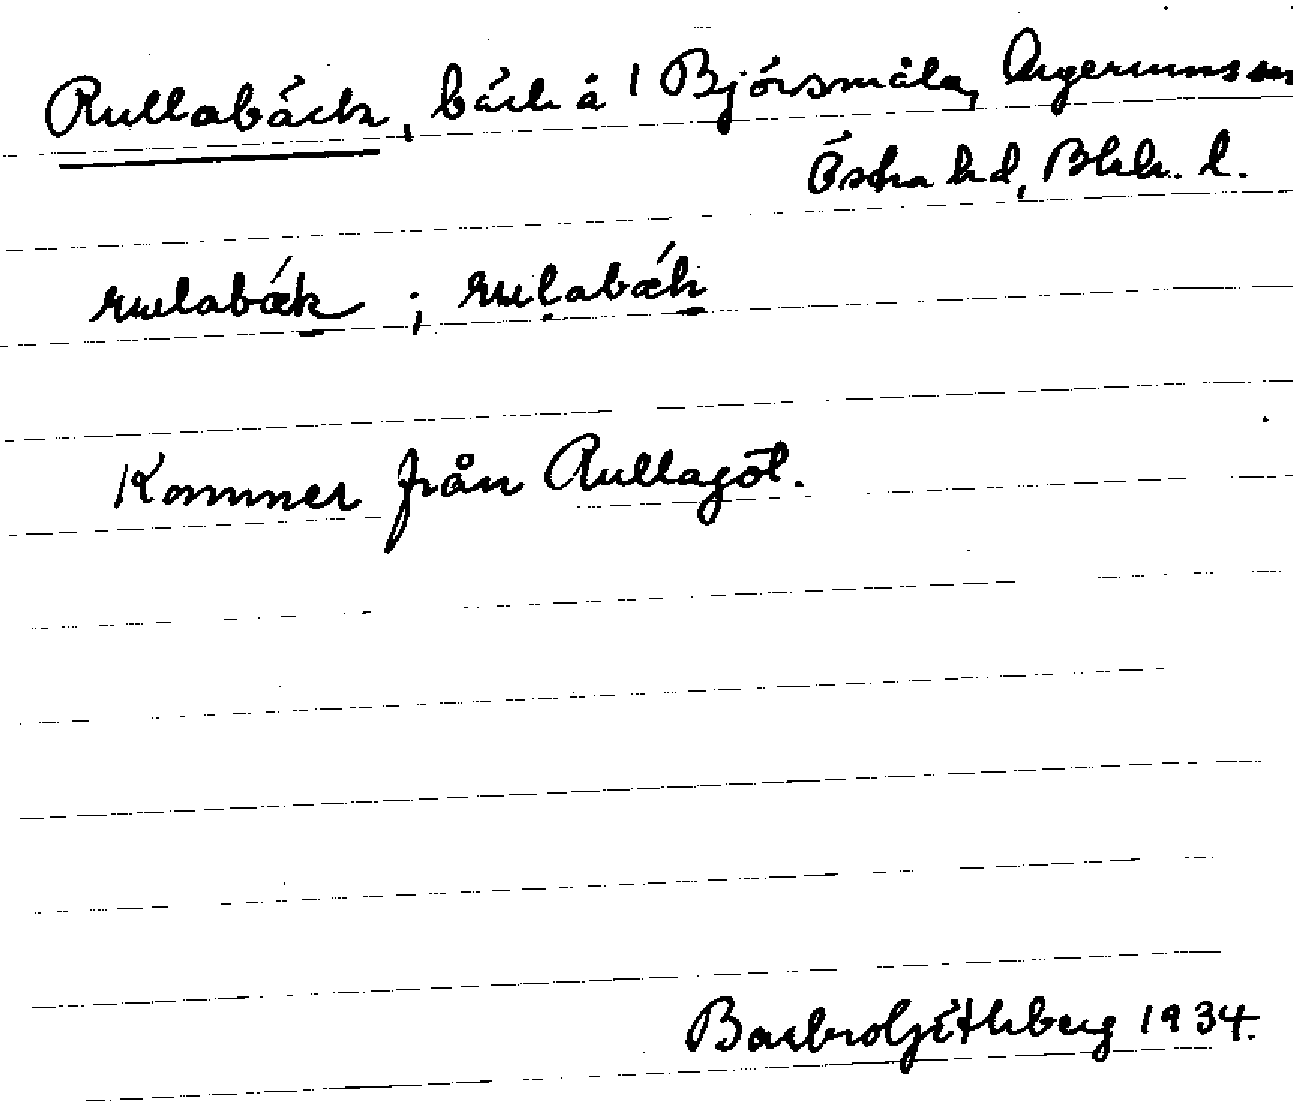 Rullabäck, bäck å 1 Björsmåla, Augerums sn
Östra hd, Blek. l.
rulabæk ; rulabæk
Kommer från Rullagöl.
Barbro 1934.